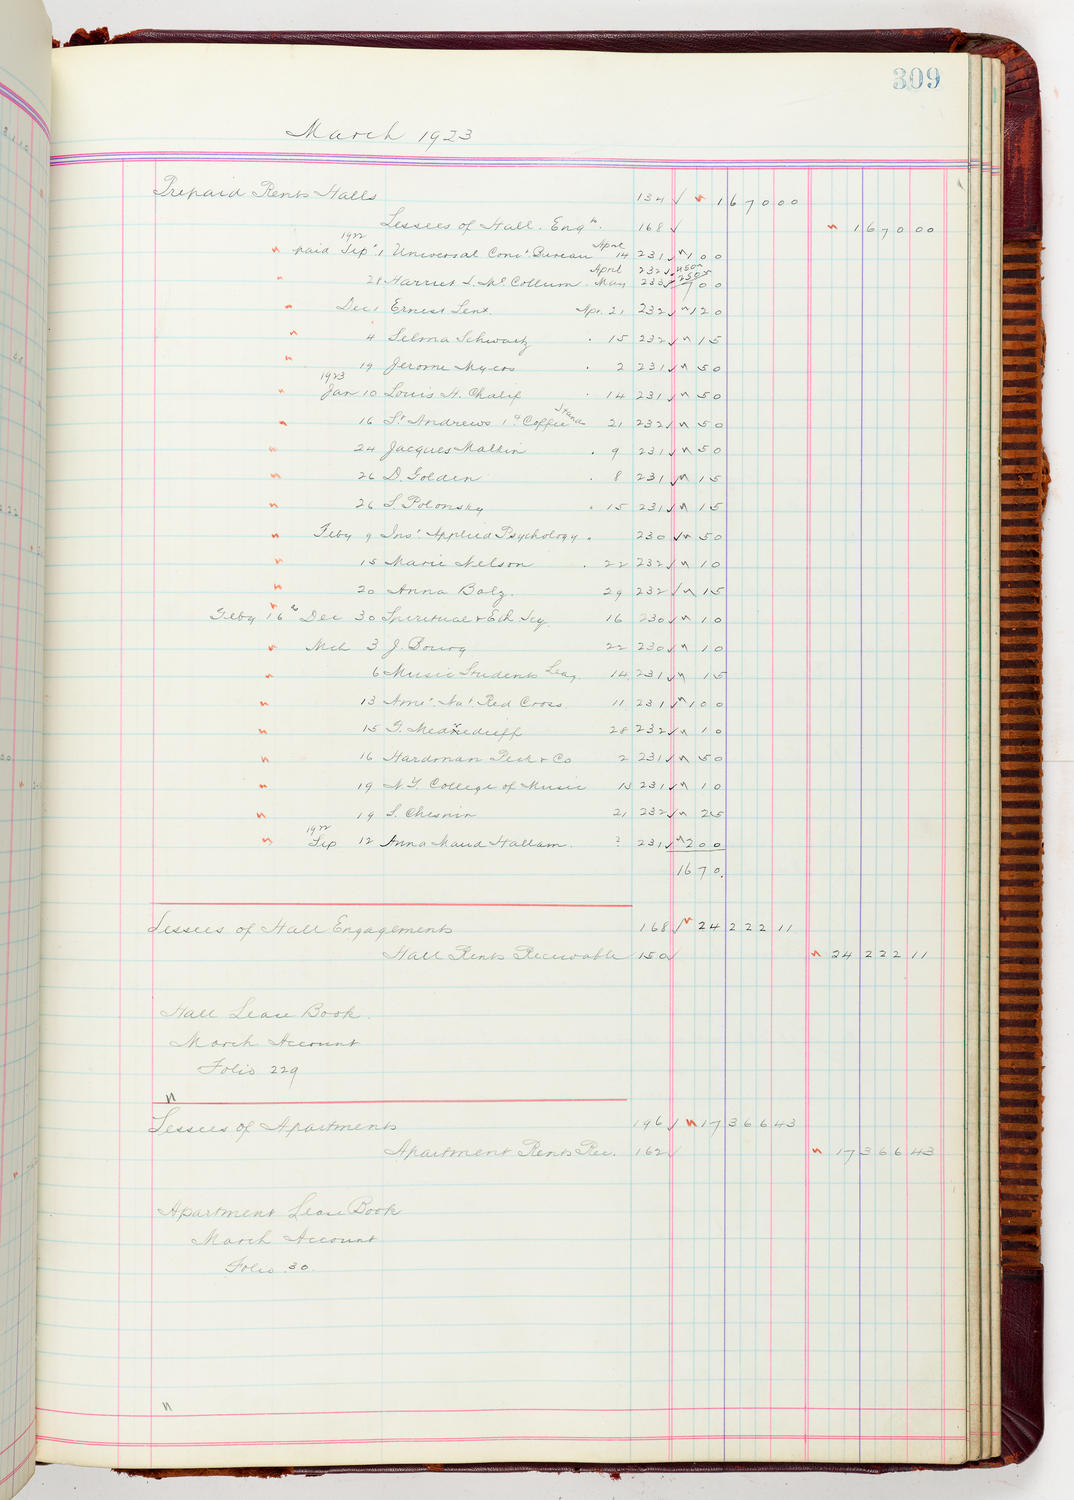 309
March 1923
Prepaid Rents Halls 134 ✓ 1670 00
Lessees of Hall. Engts. 168 ✓ 1670 00
1922 April
paid Sep 1 Universal Conct Bureau 14 231 ✓ 100
April 232 ✓ 450
28 Harriet L. McCollum. May 233 ✓ 250 700
Dec 1 Ernest Lent. Apr. 21 232 ✓ 120
4 Selma Schwartz . 15 232 ✓ 15
19 Jerome Myers . 2 231 ✓ 50
1923
Jan 10 Louis H. Chalif . 14 231 ✓ 50
16 St Andrews 1c Coffee Stands 21 232 ✓ 50
24 Jacques Malkin . 9 231 ✓ 50
26 D. Golden . 8 231 ✓ 15
26 S. Polonsky . 15 231 ✓ 15
Feby 9 Ins. Applied Psychology . 230 ✓ 50
15 Marie Nelson . 22 232 ✓ 10
20 Anna Balz. 29 232 ✓ 15
Feby 16 & Dec 30 Spiritual & Eth Scy. 16 230 ✓ 10
Mch 3 J. Bourg 22 230 ✓ 10
6 Music Students Leag 14 231 ✓ 15
13 Amer. Natl Red Cross 11 231 ✓ 100
15 G. Medredieff 28 232 ✓ 10
16 Hardman Peck & Co 2 231 ✓ 50
19 N.Y. College of Music 15 231 ✓ 10
19 S. Chesnin 21 232 ✓ 25
1922
Sep 12 Anna Maud Hallam. ? 231 ✓ 200
1670.
Lessees of Hall Engagements 168 ✓ 24 222 11
Hall Rents Receivable 150 ✓ 24 222 11
Hall Lease Book.
March Account
Folio 229
Lessees of Apartments 196 ✓ 17 366 43
Apartment Rents Rec. 162 ✓ 17 366 43
Apartment Lease Book
March Account
Folio 30.